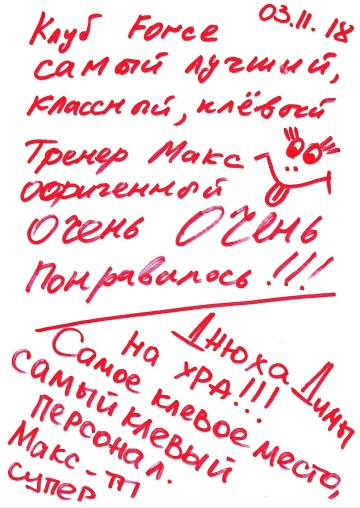 03.11.18
Клуб Force
самый лучший,
классный, клёвый
Тренер Макс
офигенный
Очень Очень
Понравилось!!!
Днюха Димы
на УРА!!!
Самое клевое место,
самый клевый
персонал.
Макс - ты
супер